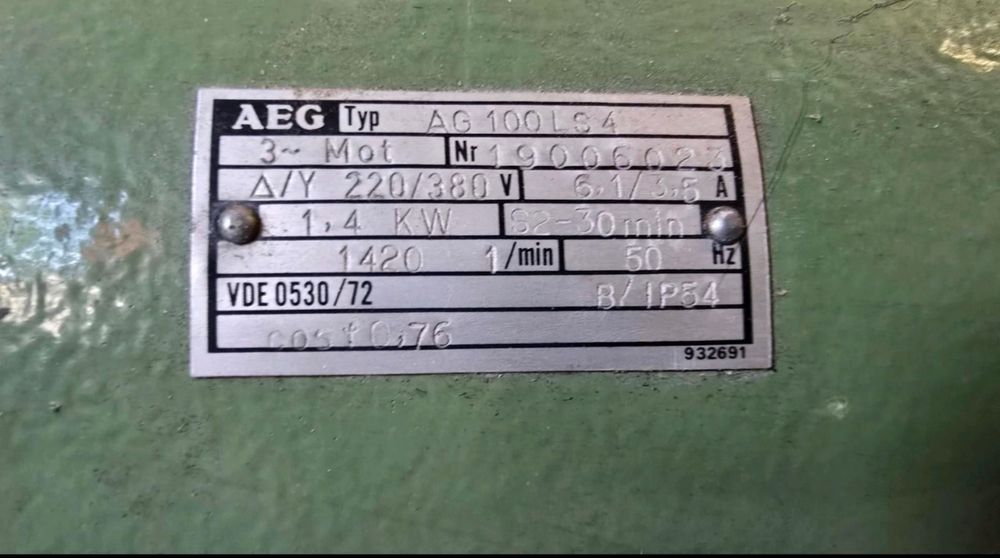 AEG Typ AG 100LS4
3~ Mot Nr 19006023
Δ/Y 220/380 V 6,1/3,5 A
1,4 KW S2-30min
1420 1/min 50 Hz
VDE 0530/72 B/IP54
cos φ 0,76
932691